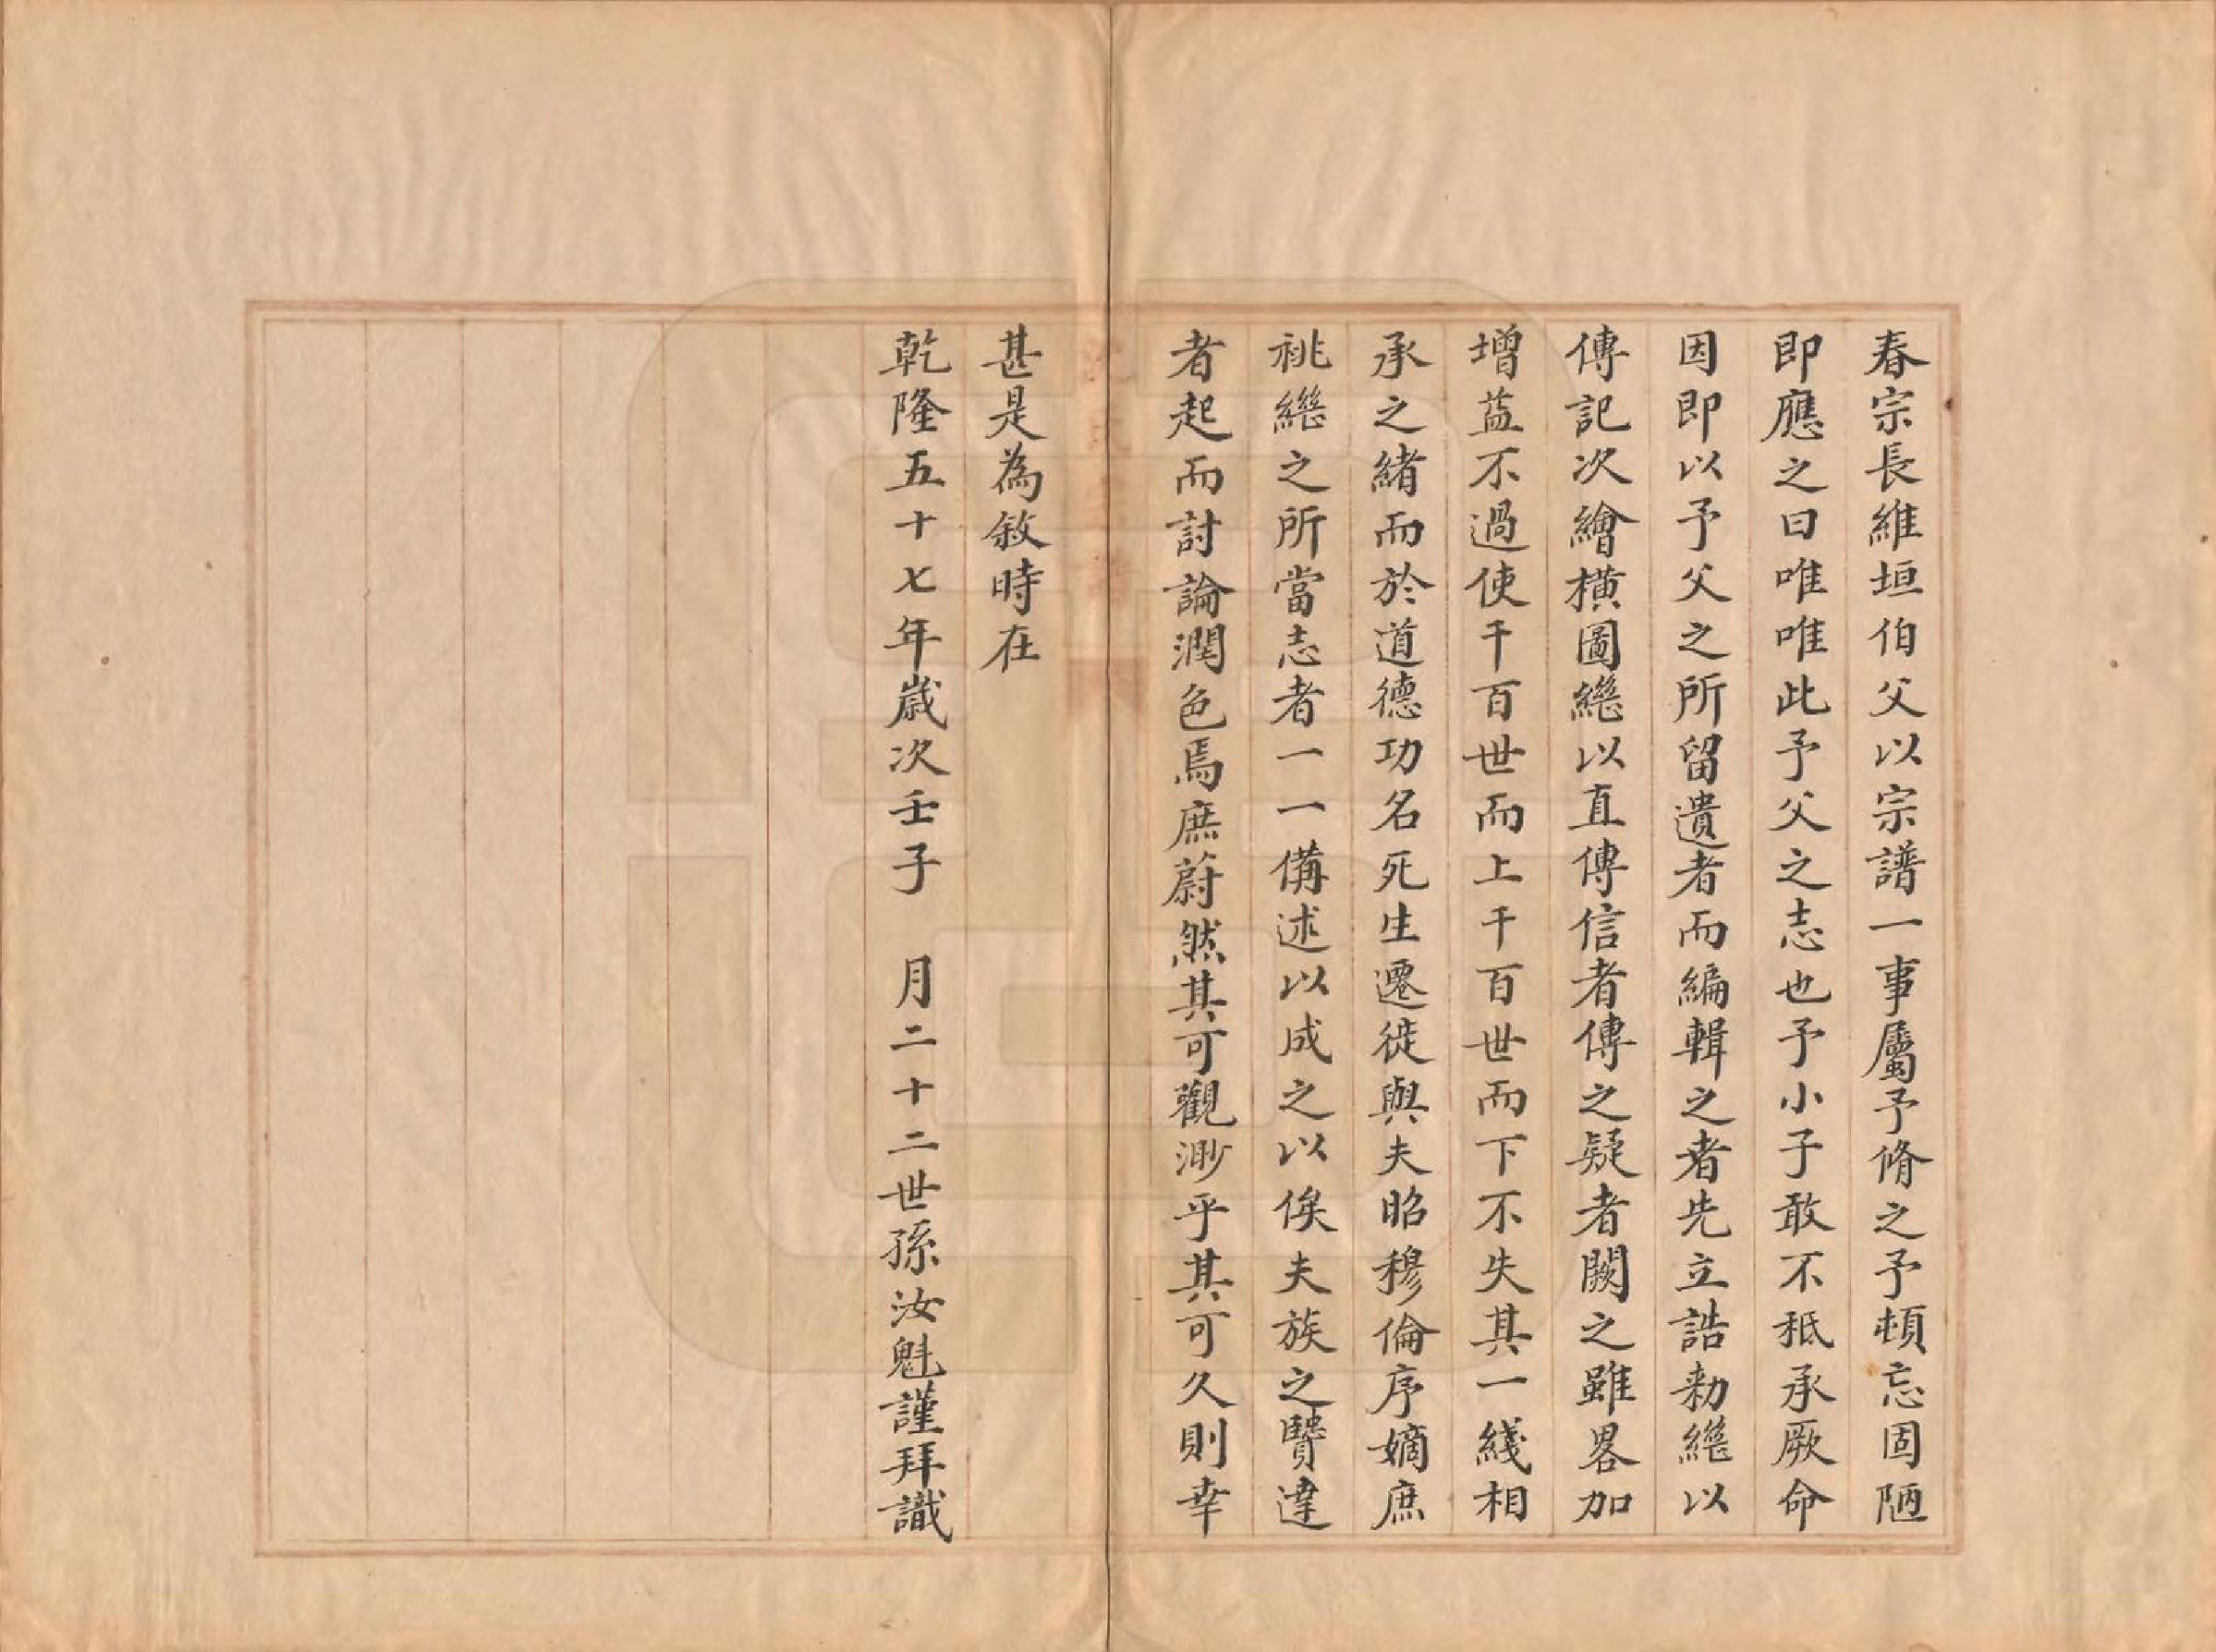 春宗長維垣伯父以宗譜一事屬予脩之予頓忘固陋
即應之曰唯唯此予父之志也予小子敢不秪承厥命
因即以予父之所留遺者而編輯之者先立誥勅繼以
傳記次繪橫圖繼以直傳信者傳之疑者闕之雖畧加
增益不過使千百世而上千百世而下不失其一綫相
承之緒而於道德功名死生遷徙與夫昭穆倫序嫡庶
祧繼之所當志者一一備述以成之以俟夫族之賢達
者起而討論潤色焉庶蔚然其可觀渺乎其可久則幸
甚是為敘時在
乾隆五十七年歲次壬子　月二十二世孫汝魁謹拜識